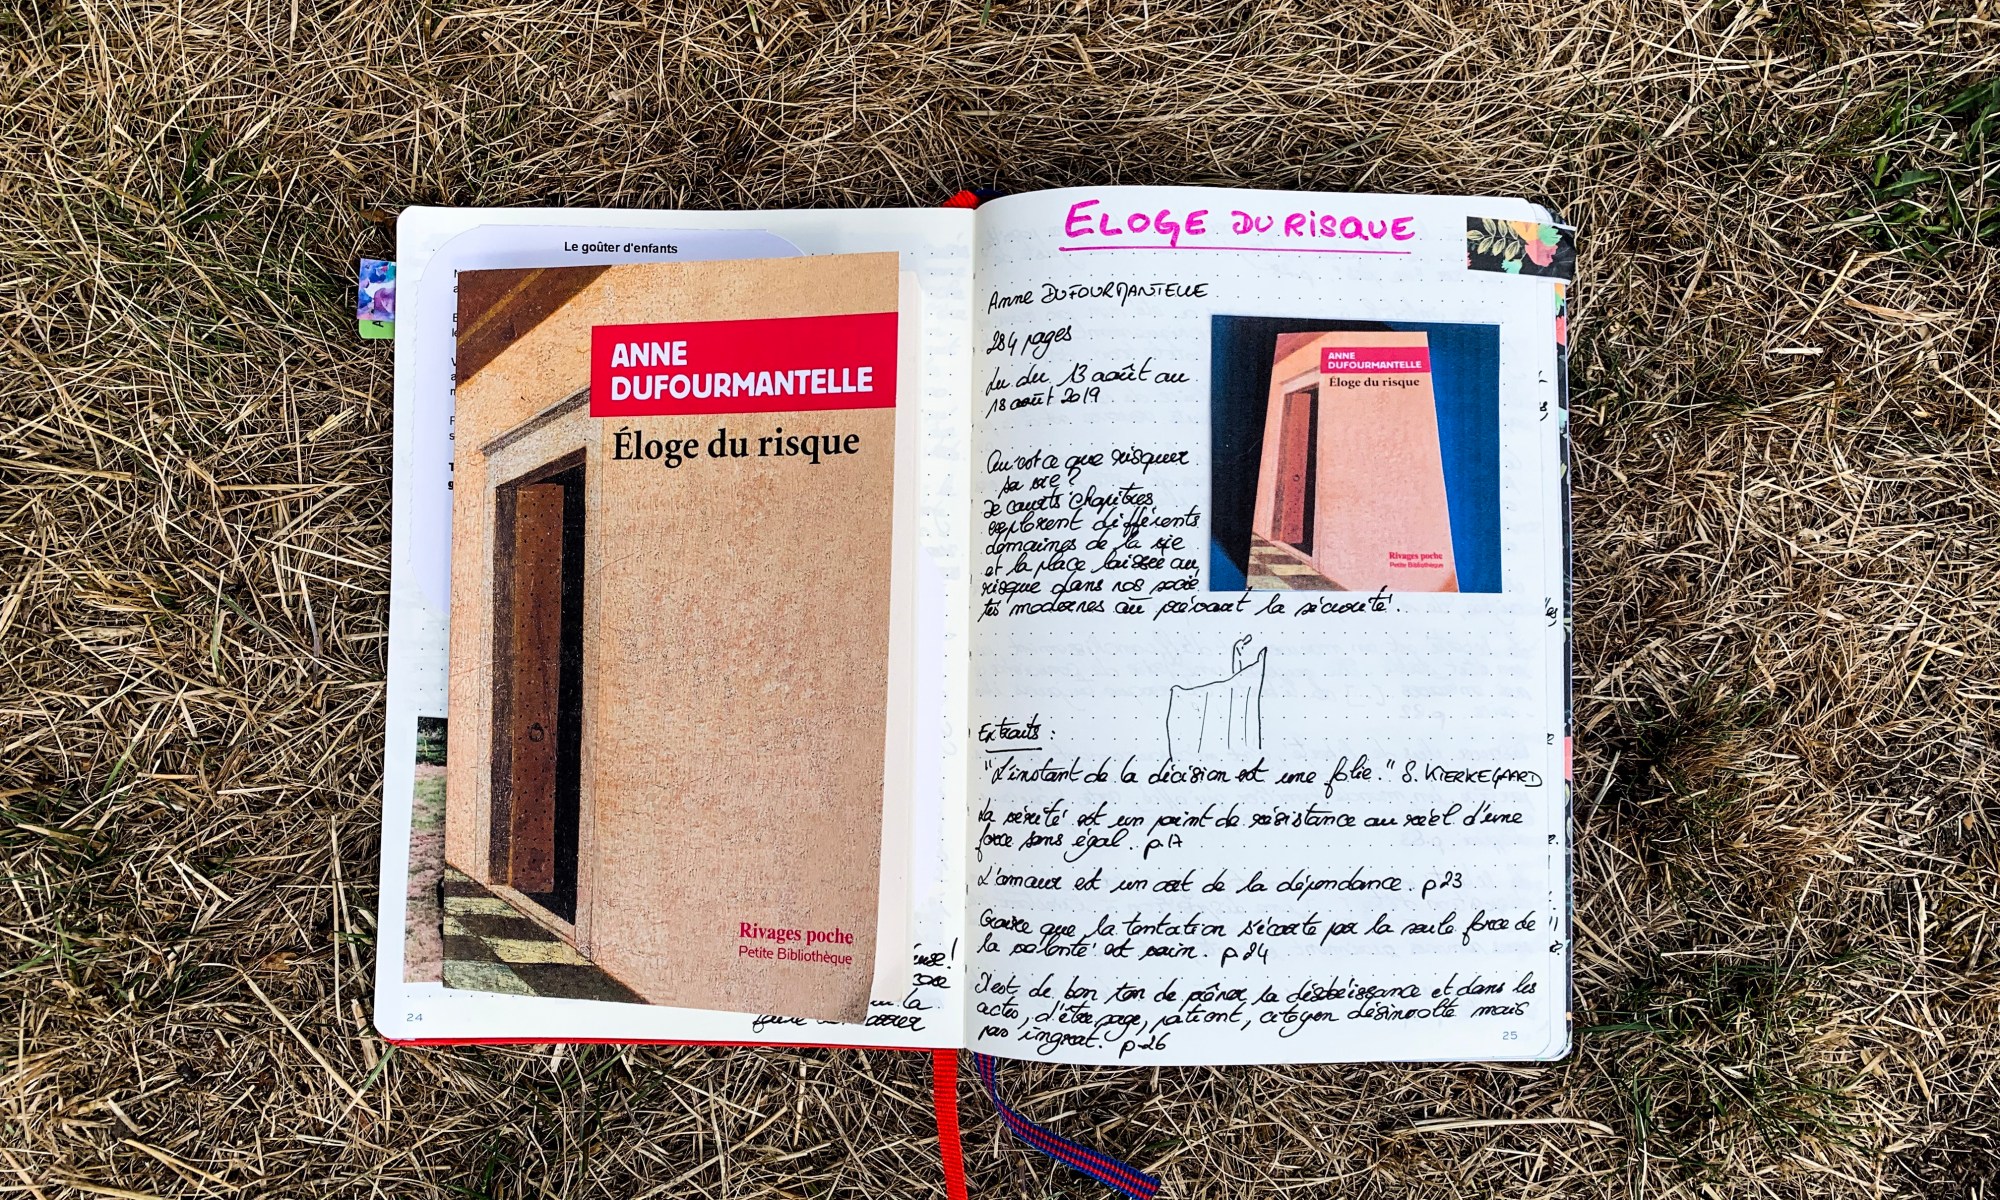 Le goûter d'enfants
ANNE
DUFOURMANTELLE
Éloge du risque
Rivages poche
Petite Bibliothèque
24
ELOGE DU RISQUE
Anne DUFOURMANTELLE
284 pages
Lu du 13 août au
18 août 2019
ANNE
DUFOURMANTELLE
Éloge du risque
Rivages poche
Petite Bibliothèque
Qu'est ce que risquer
sa vie ?
De courts chapitres
explorent différents
domaines de la vie
et la place laissée au
risque dans nos socié
tés modernes au prévaut la sécurité.
Extraits :
"L'instant de la décision est une folie." S. KIERKEGAARD
La vérité est un point de résistance au réel d'une
force sans égal. p.17
L'amour est un art de la dépendance. p 23
Croire que la tentation s'écarte par la seule force de
la volonté est vain. p 24
Il est de bon ton de prôner la désobéissance et dans les
actes, d'être page, patient, citoyen désinvolte mais
pas ingrat. p 26
25